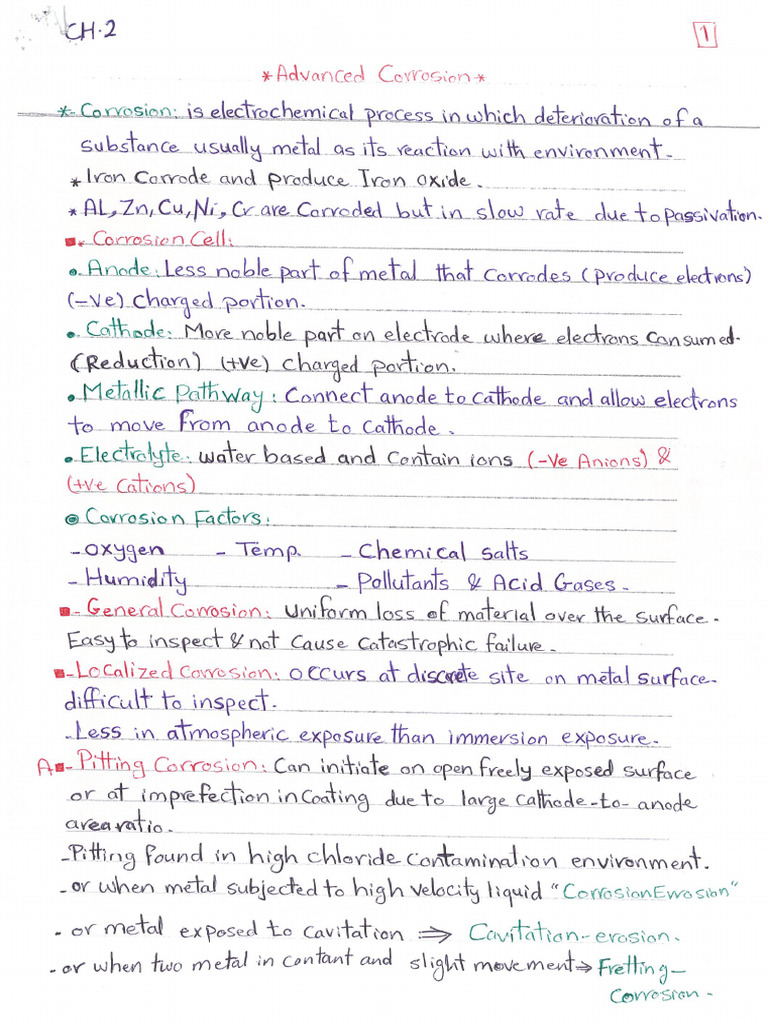 CH.2
1
* Advanced Corrosion *
*- Corrosion: is electrochemical process in which deterioration of a
substance usually metal as its reaction with environment.
* Iron Corrode and produce Iron oxide.
* AL, Zn, Cu, Ni, Cr are Corroded but in slow rate due to passivation.
* Corrosion Cell:
• Anode: Less noble part of metal that corrodes (produce electrons)
(-ve) charged portion.
• Cathode: More noble part on electrode where electrons consumed.
(Reduction) (+ve) charged portion.
• Metallic Pathway: Connect anode to cathode and allow electrons
to move from anode to cathode.
• Electrolyte: water based and contain ions (-Ve Anions) &
(+ve Cations)
Corrosion Factors:
- oxygen - Temp. - Chemical salts
- Humidity - Pollutants & Acid Gases.
- General Corrosion: Uniform loss of material over the surface.
Easy to inspect & not cause catastrophic failure.
- Localized Corrosion: occurs at discrete site on metal surface.
difficult to inspect.
- Less in atmospheric exposure than immersion exposure.
A - Pitting Corrosion: Can initiate on open freely exposed surface
or at imprefection in coating due to large cathode-to-anode
area ratio.
- Pitting found in high chloride contamination environment.
- or when metal subjected to high velocity liquid "Corrosion Erosion"
- or metal exposed to cavitation ⇒ Cavitation-erosion.
- or when two metal in contant and slight movement ⇒ Fretting-
Corrosion.